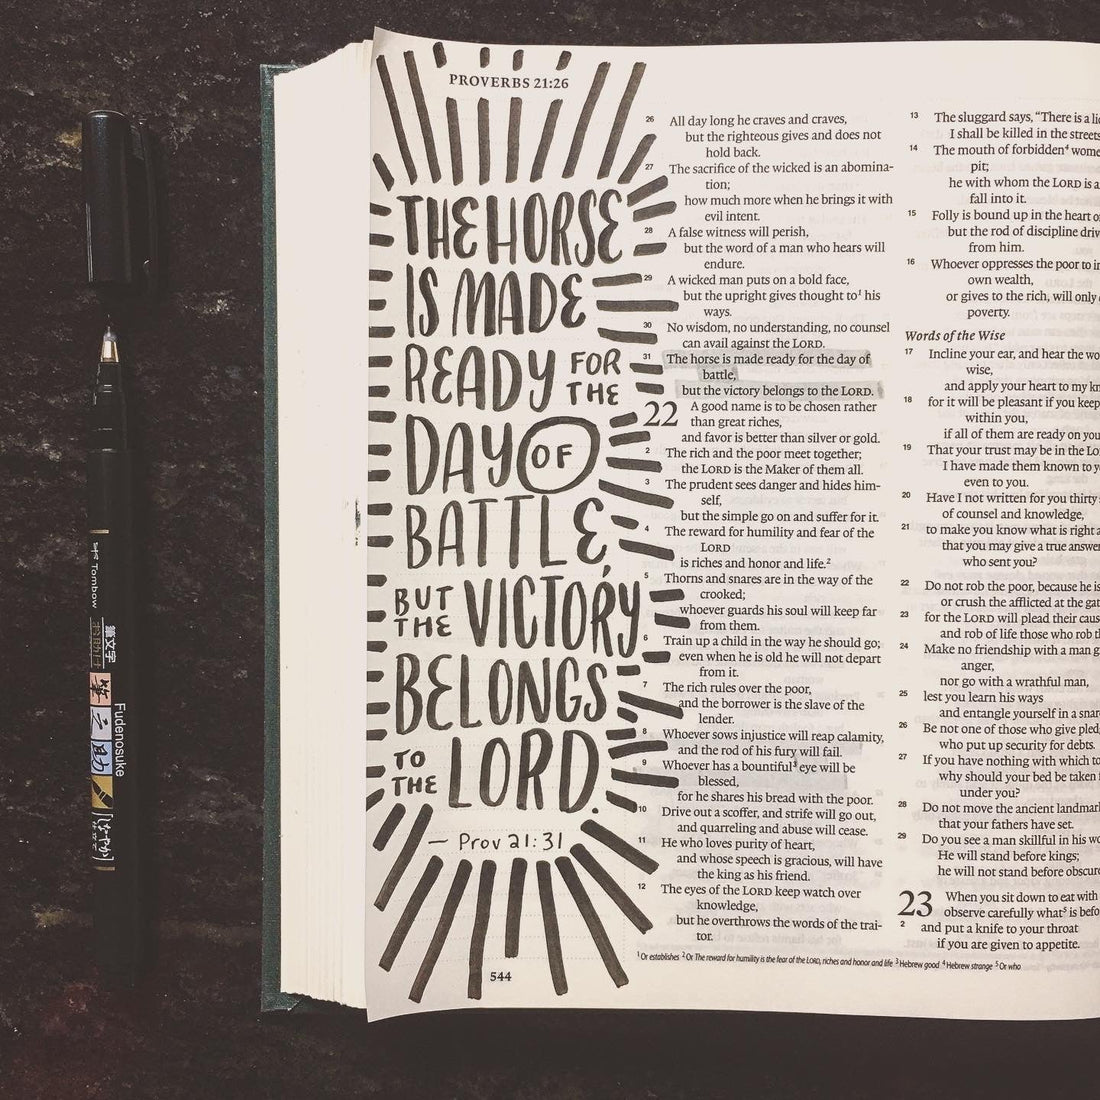 PROVERBS 21:26
THE HORSE
IS MADE
READY FOR
THE
DAY OF
BATTLE,
BUT
THE VICTORY
BELONGS
TO
THE LORD.
— Prov 21:31
544
26 All day long he craves and craves,
but the righteous gives and does not
hold back.
27 The sacrifice of the wicked is an abomina-
tion;
how much more when he brings it with
evil intent.
28 A false witness will perish,
but the word of a man who hears will
endure.
29 A wicked man puts on a bold face,
but the upright gives thought to¹ his
ways.
30 No wisdom, no understanding, no counsel
can avail against the LORD.
31 The horse is made ready for the day of
battle,
but the victory belongs to the LORD.
22 A good name is to be chosen rather
than great riches,
and favor is better than silver or gold.
2 The rich and the poor meet together;
the LORD is the Maker of them all.
3 The prudent sees danger and hides him-
self,
but the simple go on and suffer for it.
4 The reward for humility and fear of the
LORD
is riches and honor and life.²
5 Thorns and snares are in the way of the
crooked;
whoever guards his soul will keep far
from them.
6 Train up a child in the way he should go;
even when he is old he will not depart
from it.
7 The rich rules over the poor,
and the borrower is the slave of the
lender.
8 Whoever sows injustice will reap calamity,
and the rod of his fury will fail.
9 Whoever has a bountiful³ eye will be
blessed,
for he shares his bread with the poor.
10 Drive out a scoffer, and strife will go out,
and quarreling and abuse will cease.
11 He who loves purity of heart,
and whose speech is gracious, will have
the king as his friend.
12 The eyes of the LORD keep watch over
knowledge,
but he overthrows the words of the trai-
tor.
13 The sluggard says, "There is a
I shall be killed in the streets
14 The mouth of forbidden⁴
pit;
he with whom the LORD is
fall into it.
15 Folly is bound up in the heart
but the rod of discipline
from him.
16 Whoever oppresses the poor to
own wealth,
or gives to the rich, will only
poverty.
Words of the Wise
17 Incline your ear, and hear the
wise,
and apply your heart to my
18 for it will be pleasant if you keep
within you,
if all of them are ready on
19 That your trust may be in the
I have made them known to
even to you.
20 Have I not written for you thirty
of counsel and knowledge,
21 to make you know what is right
that you may give a true answer
who sent you?
22 Do not rob the poor, because he is
or crush the afflicted at the
23 for the LORD will plead their
and rob of life those who rob
24 Make no friendship with a man
anger,
nor go with a wrathful man,
25 lest you learn his ways
and entangle yourself in a
26 Be not one of those who give
who put up security for debts.
27 If you have nothing with which to
why should your bed be taken
under you?
28 Do not move the ancient
that your fathers have set.
29 Do you see a man skillful in his
He will stand before kings;
he will not stand before
23 When you sit down to eat with
observe carefully what⁵ is
2 and put a knife to your throat
if you are given to appetite.
¹ Or establishes ² Or The reward for humility is the fear of the LORD, riches and honor and life ³ Hebrew good ⁴ Hebrew strange ⁵ Or who
Tombow
筆文字
筆之助
Fudenosuke
しなやか